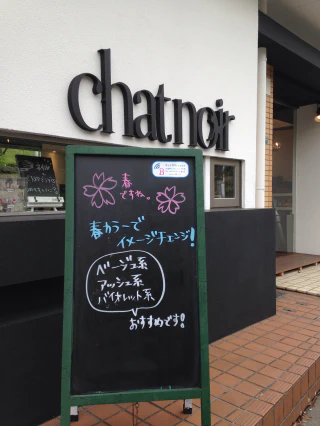 chatnoir
春
ですね。
春カラーで
イメージチェンジ!
ベージュ系
アッシュ系
バイオレット系
おすすめです!